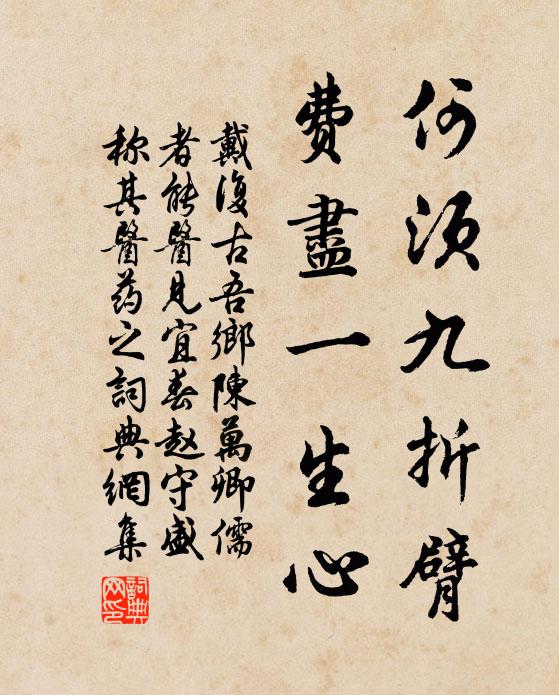 何须九折臂
費盡一生心
戴復古吾鄉陳萬卿儒
者能醫見宜春赵守盛
称其醫药之詞典網集
詞典网印